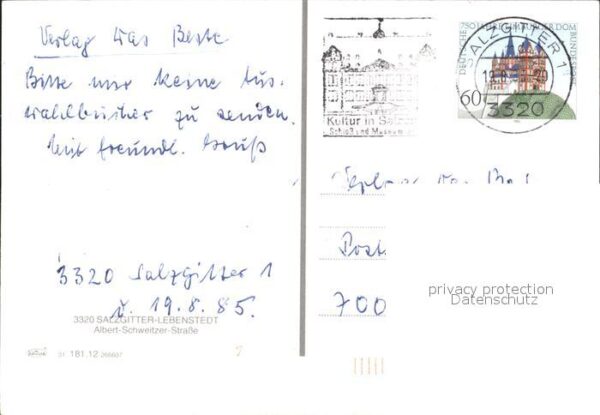 Verlag Das Beste
Bitte mir keine Aus-
wahlbücher zu senden.
Mit freundl. Gruß
3320 Salzgitter 1
d. 19.8.85.
3320 SALZGITTER-LEBENSTEDT
Albert-Schweitzer-Straße
51 181,12
750 JAHRE LIMBURGER DOM
DEUTSCHE BUNDESPOST
60
SALZGITTER 1
3320
Kultur in Salz
Schloß und Museum
Post
700
privacy protection
Datenschutz